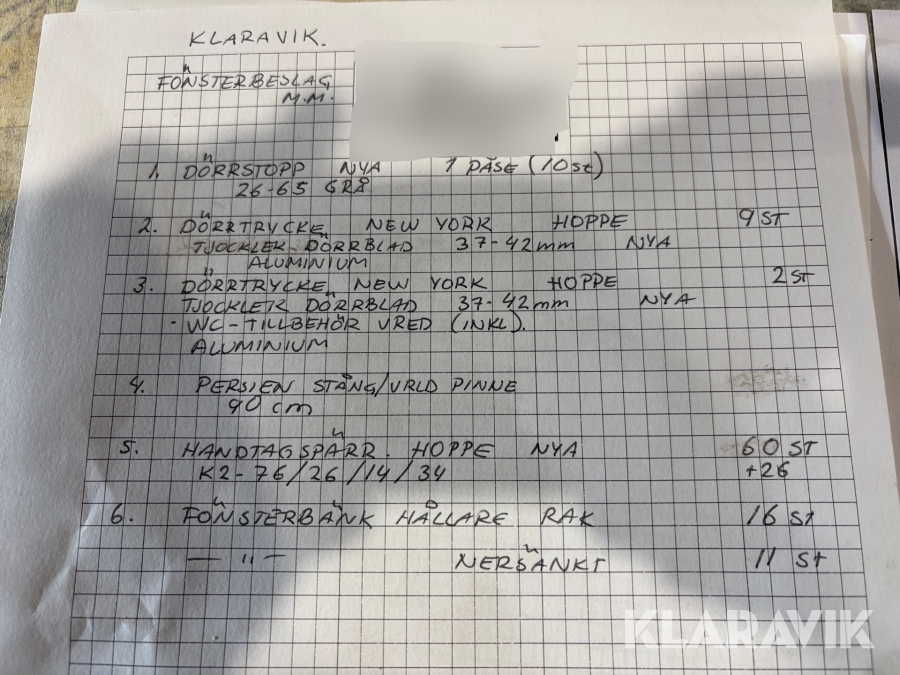 KLARAVIK.
FÖNSTERBESLAG
M.M.
1. DÖRRSTOPP NYA 1 PÅSE (10 st)
26-65 GRÅ
2. DÖRRTRYCKE NEW YORK HOPPE 9 ST
TJOCKLEK DÖRRBLAD 37-42 mm NYA
ALUMINIUM
3. DÖRRTRYCKE NEW YORK HOPPE 2 ST
TJOCKLEK DÖRRBLAD 37-42 mm NYA
- WC-TILLBEHÖR VRED (INKL).
ALUMINIUM
4. PERSIEN STÅNG/VRID PINNE
90 cm
5. HANDTAGSPÄRR. HOPPE NYA 60 ST
K2-76/26/14/34 +26
6. FÖNSTERBÄNK HÅLLARE RAK 16 st
— " — NERSÄNKT 11 st
KLARAVIK